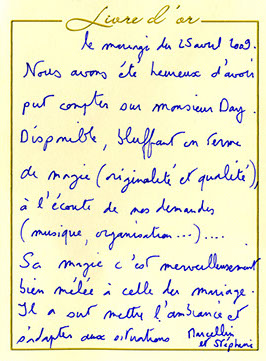 Livre d'or
le mariage du 25 avril 2009.
Nous avons été heureux d'avoir
put compter sur monsieur Day.
Disponible, bluffant en terme
de magie (originalité et qualité),
à l'écoute de nos demandes
(musique, organisation...)....
Sa magie c'est merveilleusement
bien mêlée à celle du mariage.
Il a sut mettre l'ambiance et
s'adapter aux situations Marcellin
et Stéphanie